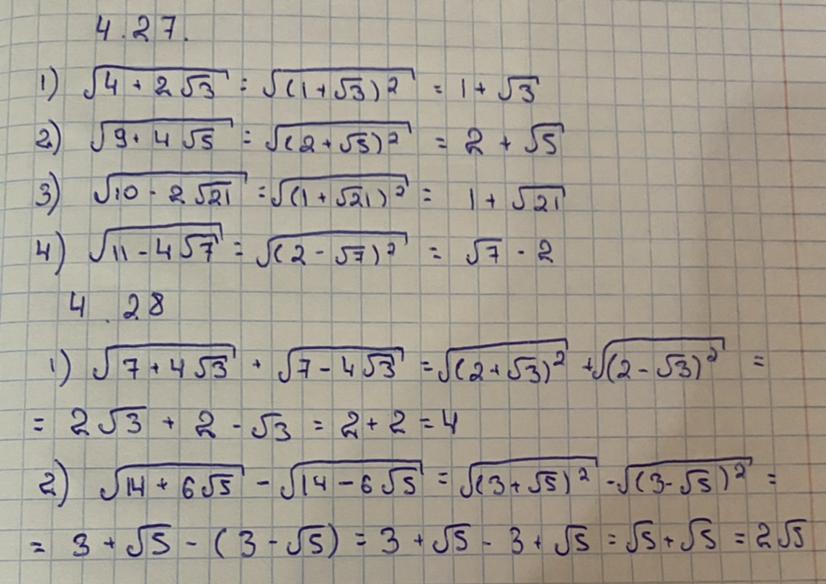 4.27.
1) √(4 + 2√3) = √((1+√3)²) = 1 + √3
2) √(9 + 4√5) = √((2+√5)²) = 2 + √5
3) √(10 - 2√21) = √((1+√21)²) = 1 + √21
4) √(11 - 4√7) = √((2 - √7)²) = √7 - 2
4.28
1) √(7 + 4√3) + √(7 - 4√3) = √((2+√3)²) + √((2 - √3)²) =
= 2√3 + 2 - √3 = 2 + 2 = 4
2) √(14 + 6√5) - √(14 - 6√5) = √((3 + √5)²) - √((3 - √5)²) =
= 3 + √5 - (3 - √5) = 3 + √5 - 3 + √5 = √5 + √5 = 2√5